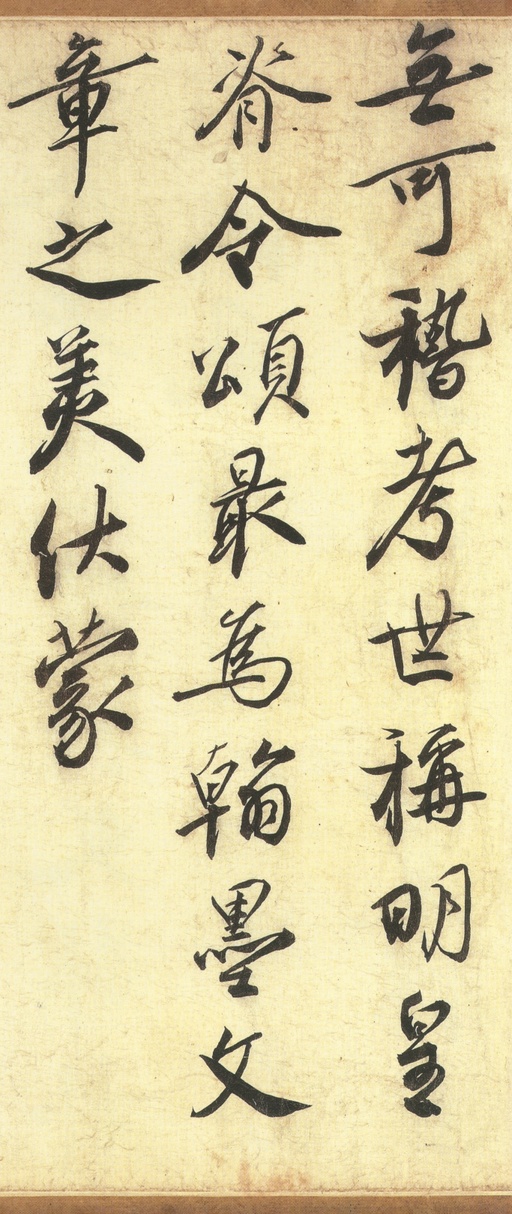 無可稽考世稱明皇
脊令頌最為翰墨文
章之美伏蒙